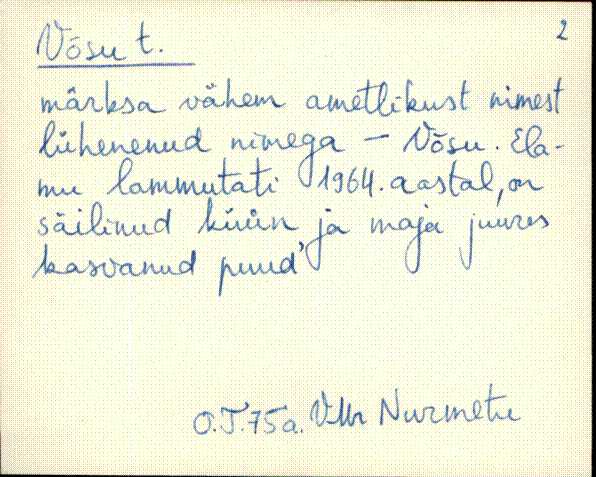 Võsu t.
2
märksa vähem ametlikust nimest
lühenenud nimega – Võsu. Ela-
mu lammutati 1964. aastal, on
säilinud küün ja maja juures
kasvanud puud
O.T. 75a. Nurmetu